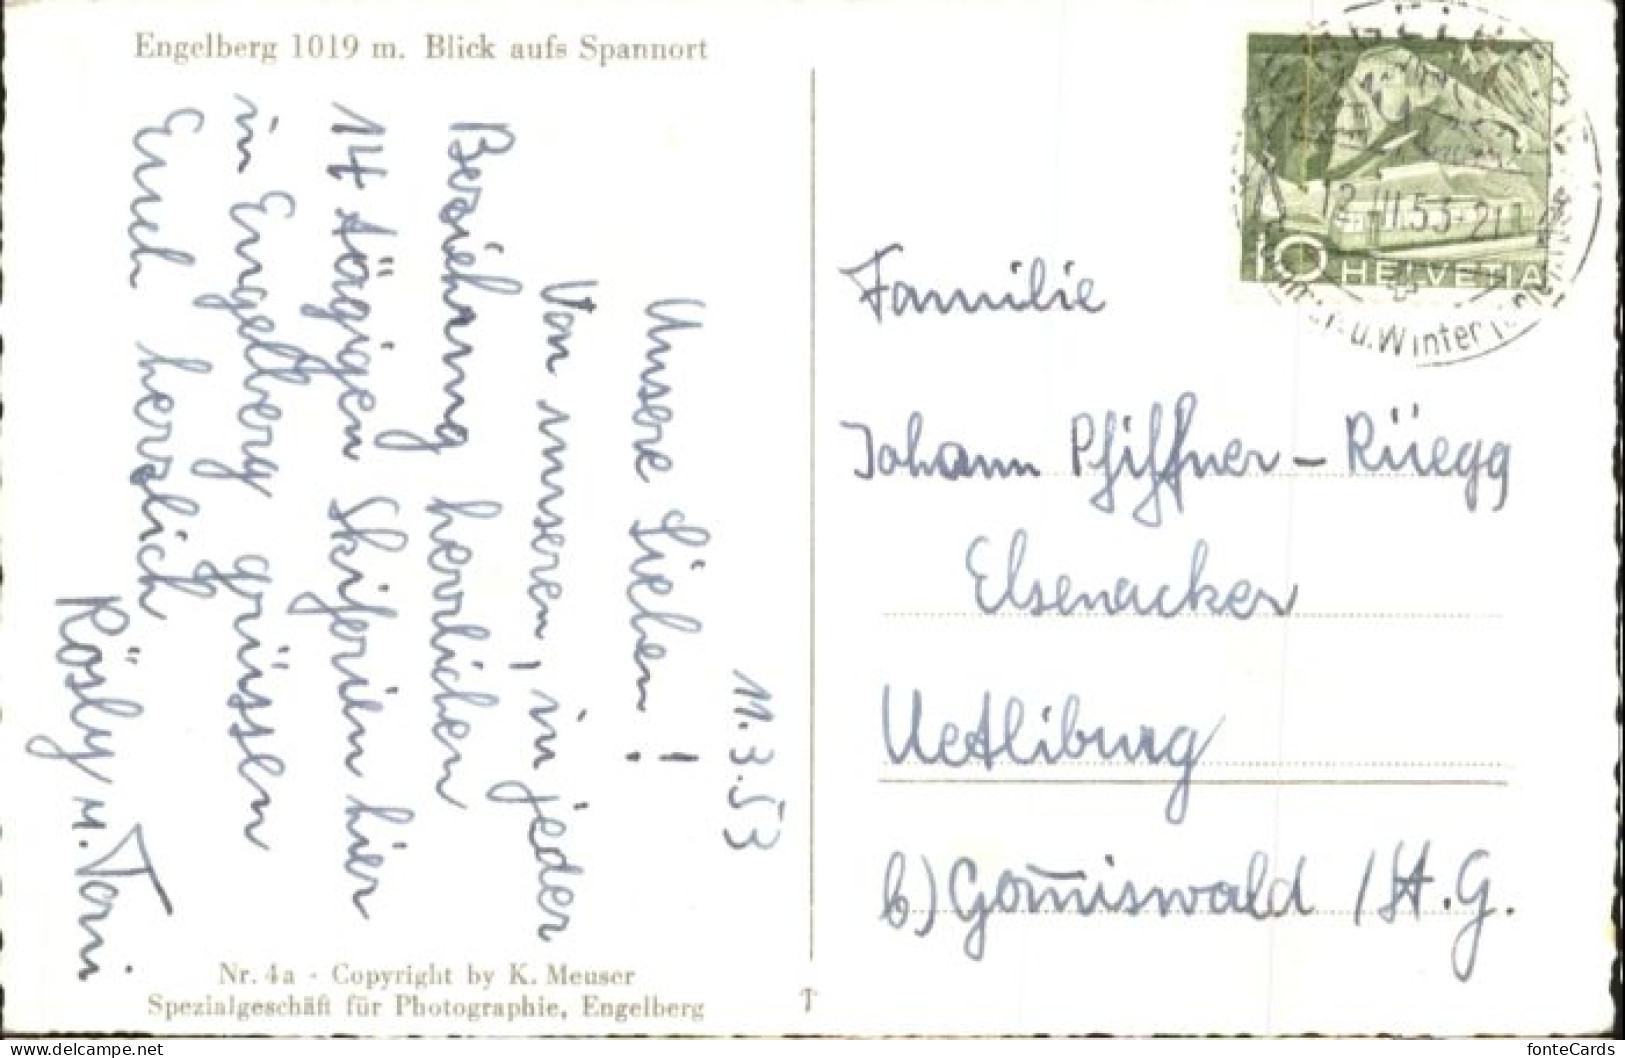 Engelberg 1019 m. Blick aufs Spannort
11.3.53
Unsere Lieben!
Von unseren, in jeder
Beziehung herrlichen
14 tägigen Skiferien hier
in Engelberg grüssen
Euch herzlich
Rösly u. Toni.
Nr. 4a - Copyright by K. Meuser
Spezialgeschäft für Photographie, Engelberg
12.III.53-21
u. Winter
10 HELVETIA
Familie
Johann Pfiffner-Rüegg
Elsenacker
Uetliburg
b) Gom̅iswald / St. G.
fonteCards